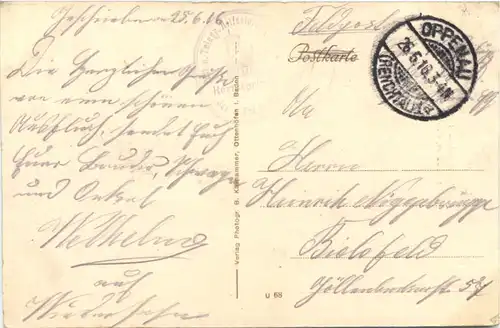 Geschrieben 25.6.16
Die Herzlichen Grüße
von einem schönen
Ausflug, sendet Euch
Euer Bruder, Schwager
und Onkel
Wilhelm
auf
Wiedersehn
Feldpost
Postkarte
OPPENAU
26.6.16.3-4N
(RENCHTAL)
An
Herrn
Heinrich
Bielefeld
Verlag Photogr. B. Ottenhöfen i. Baden
U 68